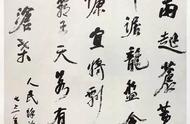 雨起蒼黃
踞龍盤今
慷宜將剩
霸王天若有
滄桑
人民解放
七三